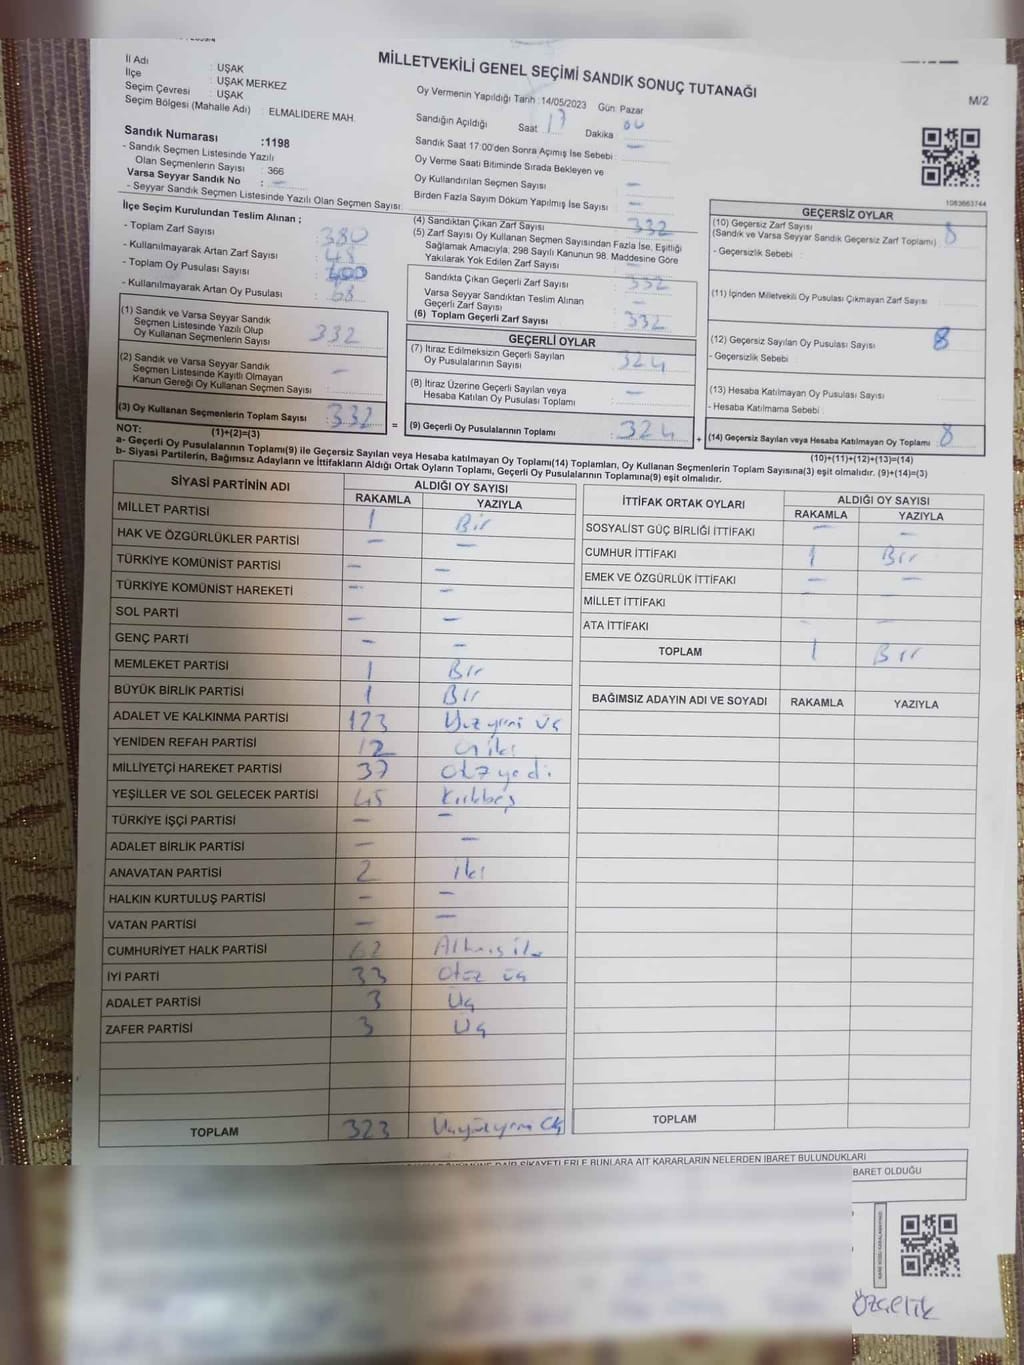 MİLLETVEKİLİ GENEL SEÇİMİ SANDIK SONUÇ TUTANAĞI
M/2
İl Adı : UŞAK
İlçe : UŞAK MERKEZ
Seçim Çevresi : UŞAK
Seçim Bölgesi (Mahalle Adı) : ELMALIDERE MAH.
Sandık Numarası :1198
- Sandık Seçmen Listesinde Yazılı
Olan Seçmenlerin Sayısı : 366
Varsa Seyyar Sandık No : –
- Seyyar Sandık Seçmen Listesinde Yazılı Olan Seçmen Sayısı:
Oy Vermenin Yapıldığı Tarih :14/05/2023 Gün: Pazar
Sandığın Açıldığı Saat 17 Dakika 00
Sandık Saat 17:00'den Sonra Açımış İse Sebebi : –
Oy Verme Saati Bitiminde Sırada Bekleyen ve
Oy Kullandırılan Seçmen Sayısı –
Birden Fazla Sayım Döküm Yapılmış İse Sayısı –
1083663744
İlçe Seçim Kurulundan Teslim Alınan ;
- Toplam Zarf Sayısı : 380
- Kullanılmayarak Artan Zarf Sayısı : 48
- Toplam Oy Pusulası Sayısı : 400
- Kullanılmayarak Artan Oy Pusulası : 68
(1) Sandık ve Varsa Seyyar Sandık
Seçmen Listesinde Yazılı Olup
Oy Kullanan Seçmenlerin Sayısı 332
(2) Sandık ve Varsa Seyyar Sandık
Seçmen Listesinde Kayıtlı Olmayan
Kanun Gereği Oy Kullanan Seçmen Sayısı –
(3) Oy Kullanan Seçmenlerin Toplam Sayısı : 332
(4) Sandıktan Çıkan Zarf Sayısı 332
(5) Zarf Sayısı Oy Kullanan Seçmen Sayısından Fazla İse, Eşitliği
Sağlamak Amacıyla, 298 Sayılı Kanunun 98. Maddesine Göre
Yakılarak Yok Edilen Zarf Sayısı –
Sandıkta Çıkan Geçerli Zarf Sayısı : 332
Varsa Seyyar Sandıktan Teslim Alınan
Geçerli Zarf Sayısı : –
(6) Toplam Geçerli Zarf Sayısı 332
GEÇERLİ OYLAR
(7) İtiraz Edilmeksizin Geçerli Sayılan
Oy Pusulalarının Sayısı 324
(8) İtiraz Üzerine Geçerli Sayılan veya
Hesaba Katılan Oy Pusulası Toplamı –
= (9) Geçerli Oy Pusulalarının Toplamı : 324
GEÇERSİZ OYLAR
(10) Geçersiz Zarf Sayısı
(Sandık ve Varsa Seyyar Sandık Geçersiz Zarf Toplamı) 8
- Geçersizlik Sebebi :
(11) İçinden Milletvekili Oy Pusulası Çıkmayan Zarf Sayısı
(12) Geçersiz Sayılan Oy Pusulası Sayısı 8
- Geçersizlik Sebebi
(13) Hesaba Katılmayan Oy Pusulası Sayısı
- Hesaba Katılmama Sebebi :
+ (14) Geçersiz Sayılan veya Hesaba Katılmayan Oy Toplamı 8
NOT: (1)+(2)=(3)
(10)+(11)+(12)+(13)=(14)
a- Geçerli Oy Pusulalarının Toplamı(9) ile Geçersiz Sayılan veya Hesaba katılmayan Oy Toplamı(14) Toplamları, Oy Kullanan Seçmenlerin Toplam Sayısına(3) eşit olmalıdır. (9)+(14)=(3)
b- Siyasi Partilerin, Bağımsız Adayların ve İttifakların Aldığı Ortak Oyların Toplamı, Geçerli Oy Pusulalarının Toplamına(9) eşit olmalıdır.
SİYASİ PARTİNİN ADI ALDIĞI OY SAYISI
RAKAMLA YAZIYLA
MİLLET PARTİSİ 1 Bir
HAK VE ÖZGÜRLÜKLER PARTİSİ – –
TÜRKİYE KOMÜNİST PARTİSİ – –
TÜRKİYE KOMÜNİST HAREKETİ – –
SOL PARTİ – –
GENÇ PARTİ – –
MEMLEKET PARTİSİ 1 Bir
BÜYÜK BİRLİK PARTİSİ 1 Bir
ADALET VE KALKINMA PARTİSİ 123 Yüzyirmi üç
YENİDEN REFAH PARTİSİ 12 oniki
MİLLİYETÇİ HAREKET PARTİSİ 37 otuzyedi
YEŞİLLER VE SOL GELECEK PARTİSİ 45 Kırkbeş
TÜRKİYE İŞÇİ PARTİSİ – –
ADALET BİRLİK PARTİSİ – –
ANAVATAN PARTİSİ 2 iki
HALKIN KURTULUŞ PARTİSİ – –
VATAN PARTİSİ – –
CUMHURİYET HALK PARTİSİ 62 Altmış iki
İYİ PARTİ 33 otuz üç
ADALET PARTİSİ 3 Üç
ZAFER PARTİSİ 3 Üç
TOPLAM 323 Üçyüzyirmi üç
İTTİFAK ORTAK OYLARI ALDIĞI OY SAYISI
RAKAMLA YAZIYLA
SOSYALİST GÜÇ BİRLİĞİ İTTİFAKI – –
CUMHUR İTTİFAKI 1 Bir
EMEK VE ÖZGÜRLÜK İTTİFAKI – –
MİLLET İTTİFAKI
ATA İTTİFAKI – –
TOPLAM 1 Bir
BAĞIMSIZ ADAYIN ADI VE SOYADI RAKAMLA YAZIYLA
TOPLAM
ŞİKAYETLERLE BUNLARA AİT KARARLARIN NELERDEN İBARET BULUNDUKLARI
BARET OLDUĞU
ÖZÇELİK